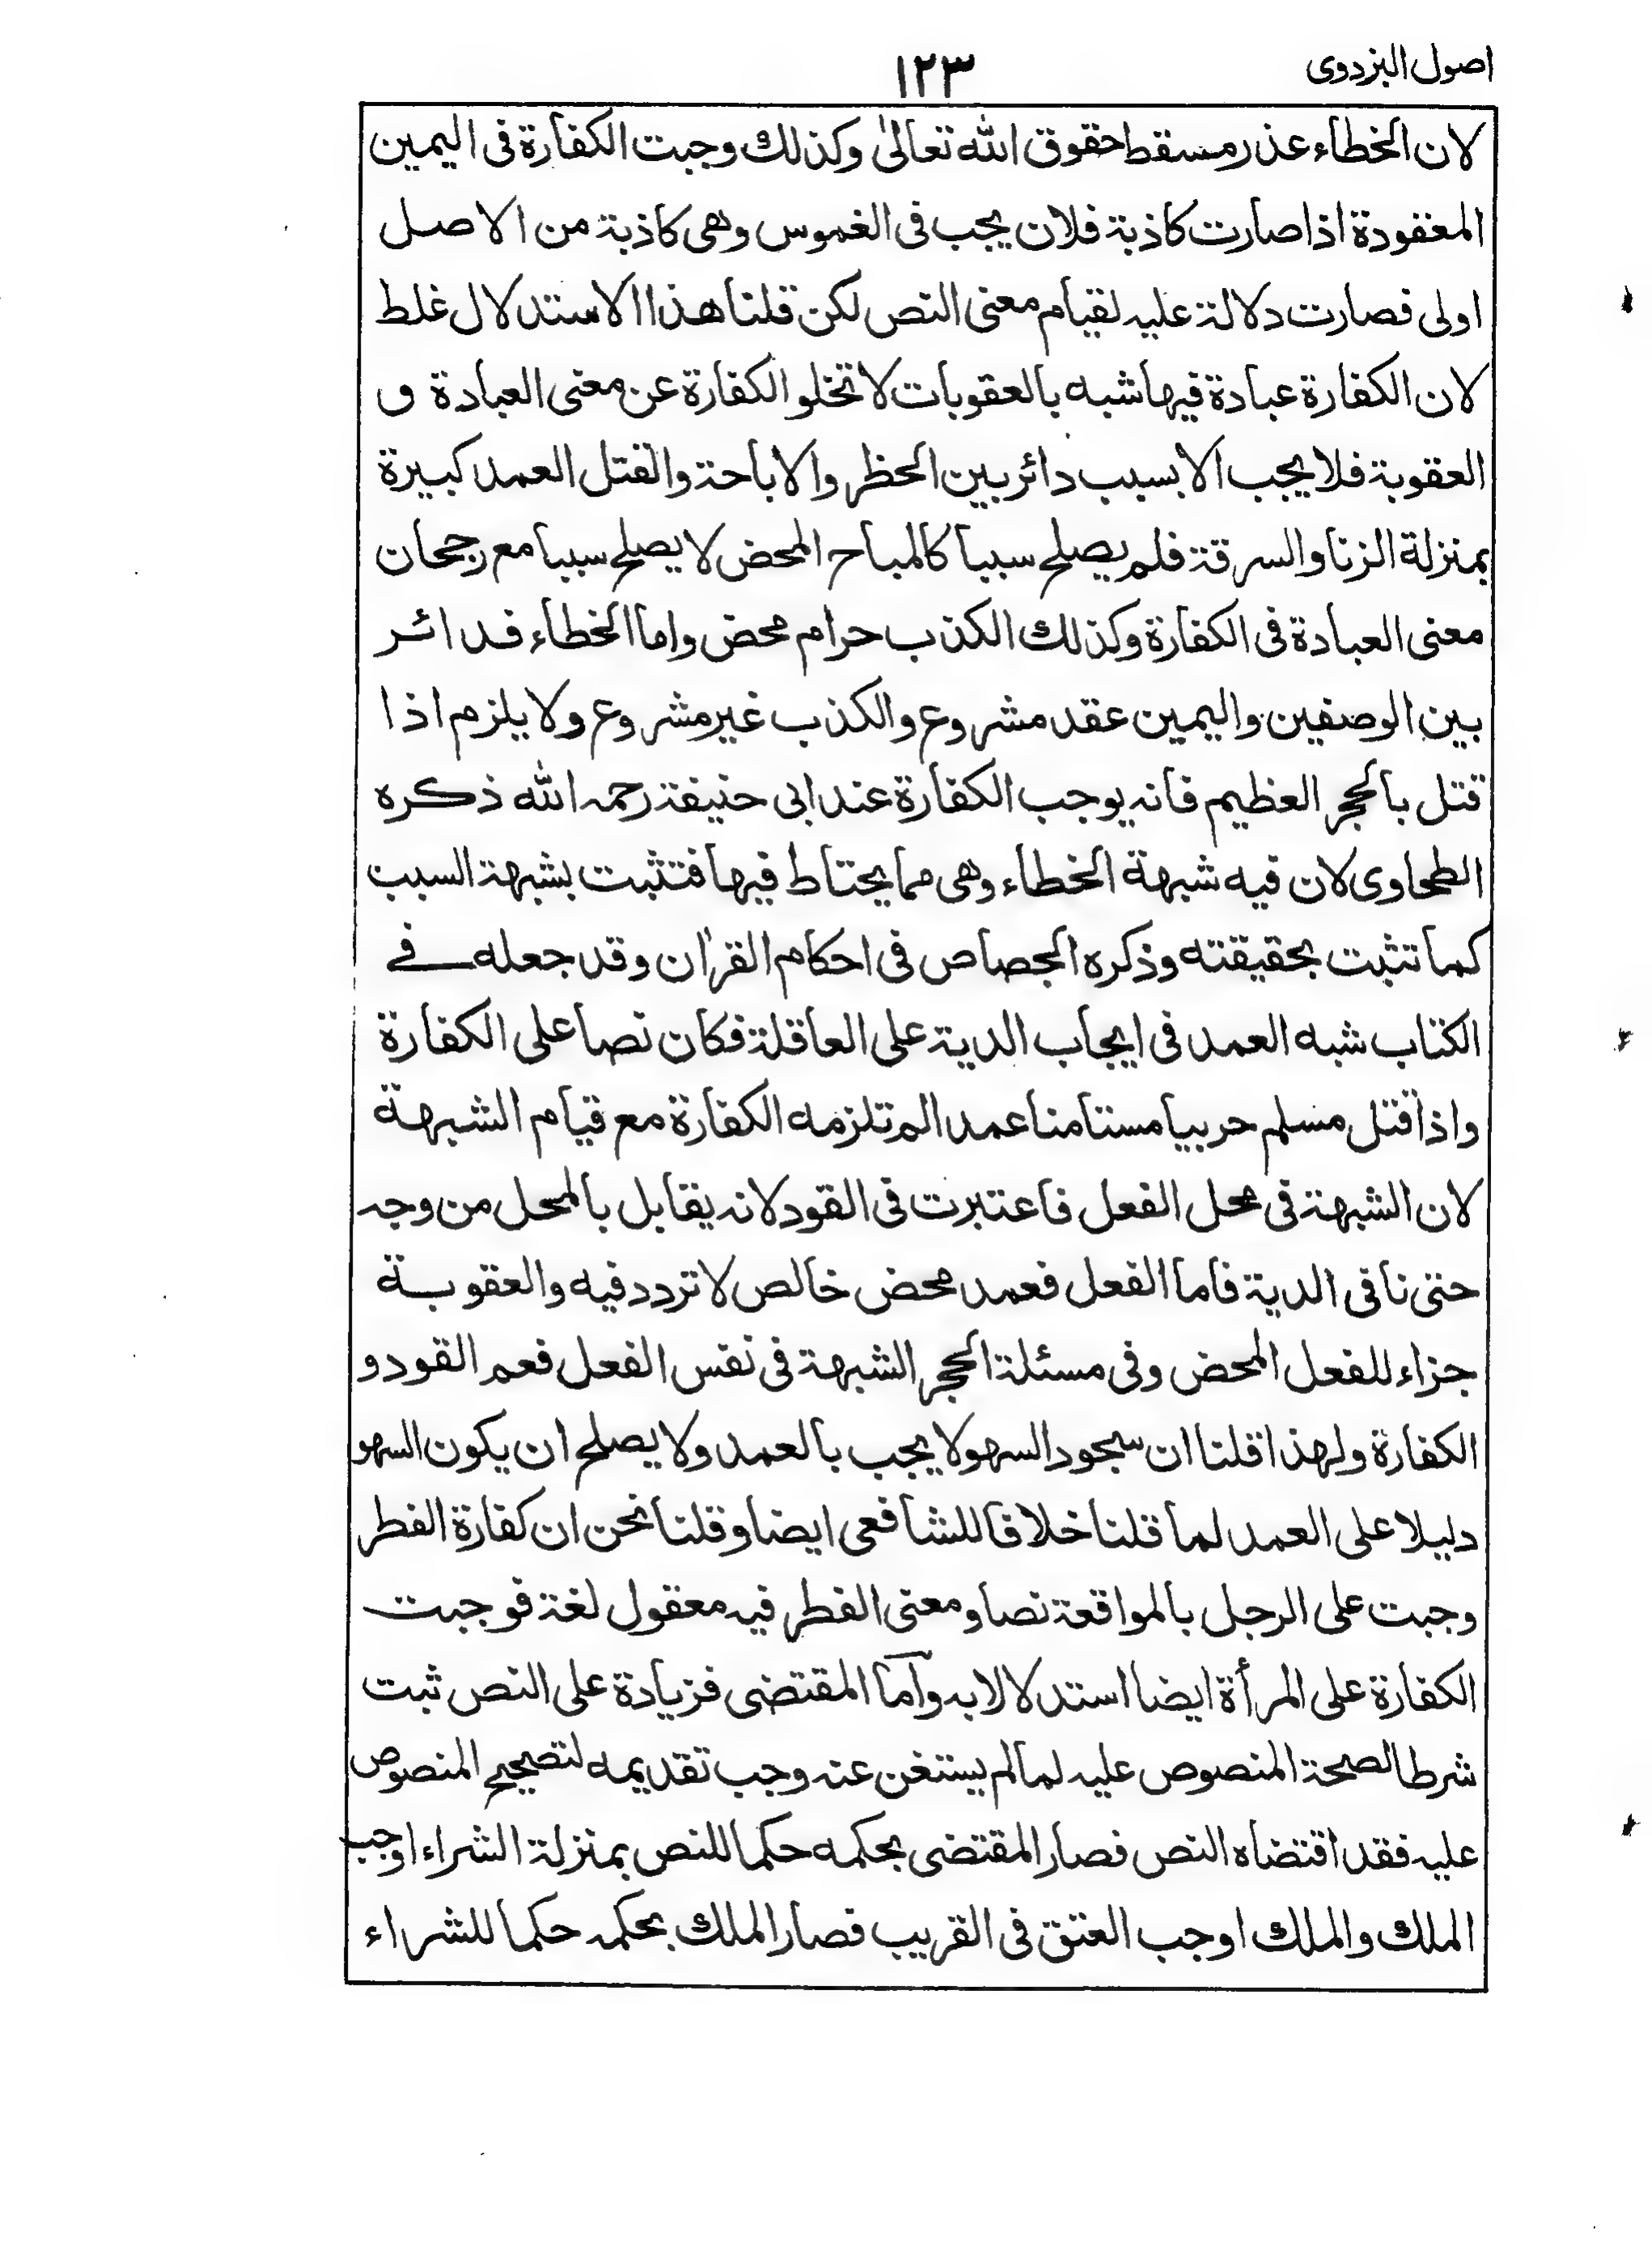 اصول البزدوی
١٢٣
لان الخطاء عذر مسقط حقوق الله تعالىٰ وكذلك وجبت الكفارة فى اليمين
المعقودة اذا صارت كاذبة فلان يجب فى الغموس وهى كاذبة من الاصل
اولى فصارت دلالة عليه لقيام معنى النص لكن قلنا هذا الاستدلال غلط
لان الكفارة عبادة فيها شبه بالعقوبات لا تخلو الكفارة عن معنى العبادة و
العقوبة فلا يجب الا بسبب دائر بين الحظر والاباحة والقتل العمد كبيرة
بمنزلة الزنا والسرقة فلم يصلح سببا كالمباح المحض لا يصلح سببا مع رجحان
معنى العبادة فى الكفارة وكذلك الكذب حرام محض واما الخطاء فدائر
بين الوصفين واليمين عقد مشروع والكذب غير مشروع ولا يلزم اذا
قتل بالحجر العظيم فانه يوجب الكفارة عند ابى حنيفة رحمه الله ذكره
الطحاوى لان فيه شبهة الخطاء وهى مما يحتاط فيها فتثبت بشبهة السبب
كما تثبت بحقيقته وذكره الجصاص فى احكام القرٰان وقد جعله فے
الكتاب شبه العمد فى ايجاب الدية على العاقلة فكان نصا على الكفارة
واذا قتل مسلم حربيا مستامنا عمدا لم تلزمه الكفارة مع قيام الشبهة
لان الشبهة فى محل الفعل فاعتبرت فى القود لانه يقابل بالمحل من وجه
حتى نافى الدية فاما الفعل فعمد محض خالص لا تردد فيه والعقوبة
جزاء للفعل المحض وفى مسئلة الحجر الشبهة فى نفس الفعل فعم القود و
الكفارة ولهذا قلنا ان سجود السهو لا يجب بالعمد ولا يصلح ان يكون السهو
دليلا على العمد لما قلنا خلافا للشافعى ايضا وقلنا نحن ان كفارة الفطر
وجبت على الرجل بالمواقعة نصا ومعنى الفطر فيه معقول لغة فوجبت
الكفارة على المرأة ايضا استدلالا به وآما المقتضى فزيادة على النص ثبت
شرطا لصحة المنصوص عليه لما لم يستغن عنه وجب تقديمه لتصحيح المنصوص
عليه فقد اقتضاه النص فصار المقتضى بحكمه حكما للنص بمنزلة الشراء اوجب
الملك والملك اوجب العتق فى القريب فصار الملك بحكمه حكما للشراء